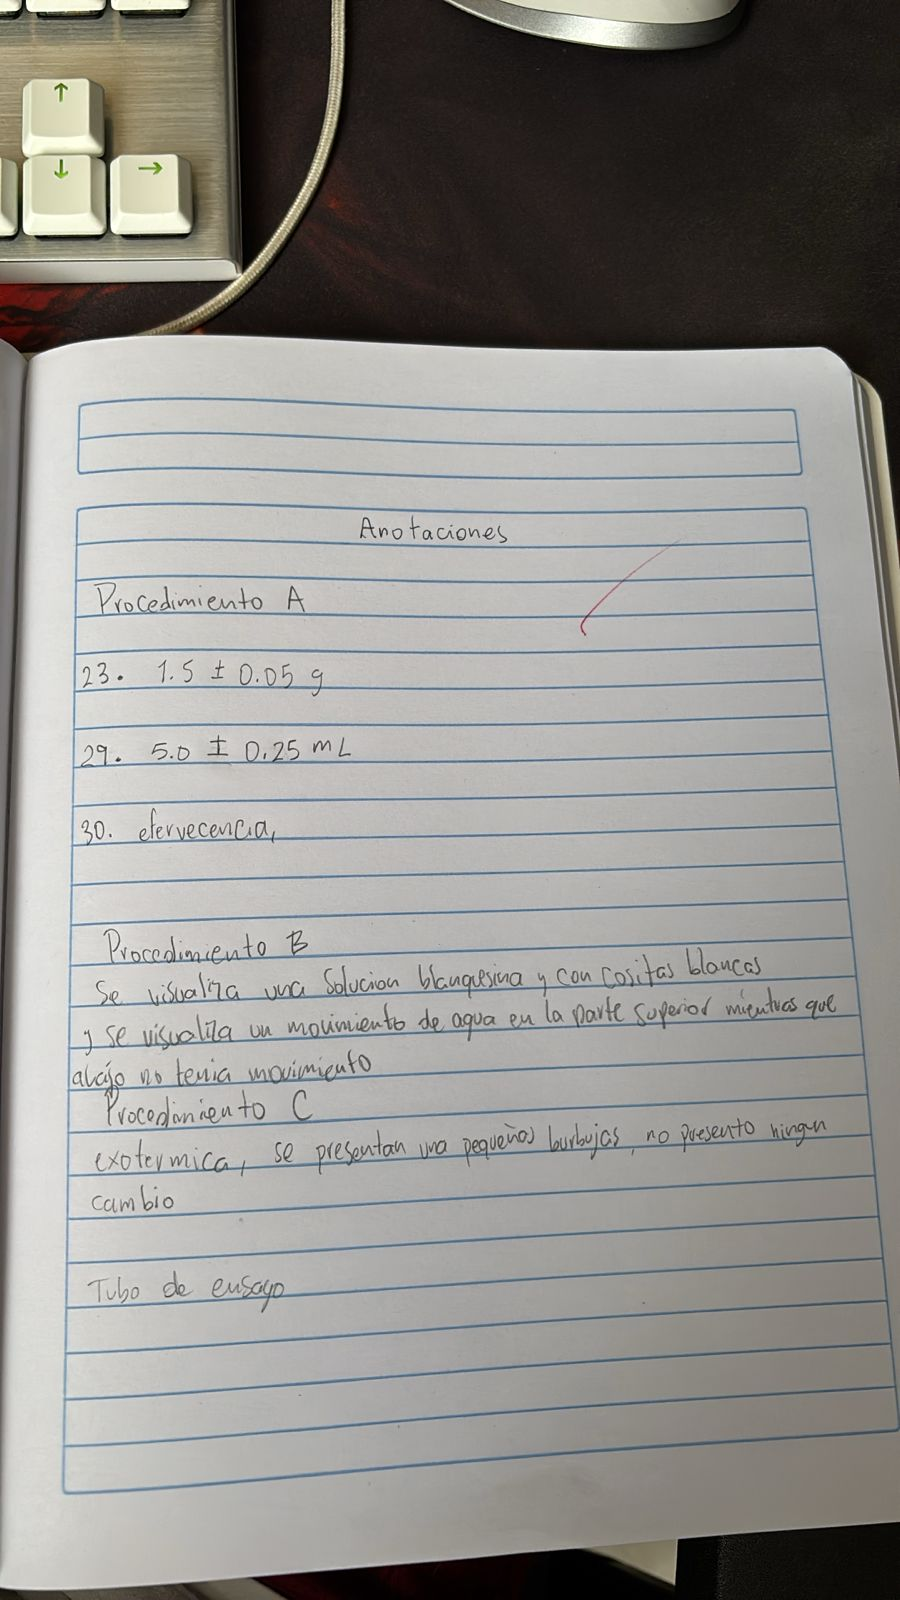 Anotaciones
Procedimiento A
23. 1.5 ± 0.05 g
29. 5.0 ± 0.25 mL
30. efervecencia,
Procedimiento B
Se visualiza una solucion blanquesina y con cositas blancas
y se visualiza un movimiento de agua en la parte superior mientras que
abajo no tenia movimiento
Procedimiento C
exotermica, se presentan una pequeños burbujas, no presento ningun
cambio
Tubo de ensayo